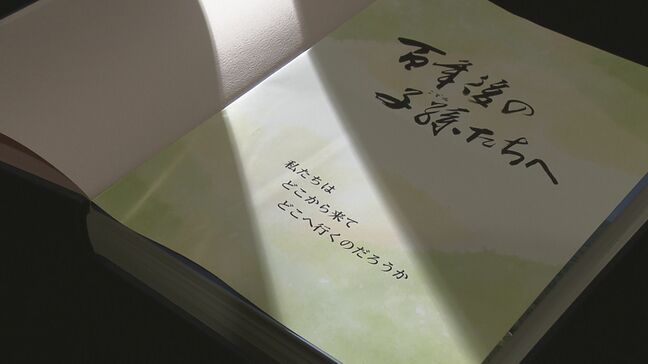 百年後の
子孫たちへ
私たちは
どこから来て
どこへ行くのだろうか